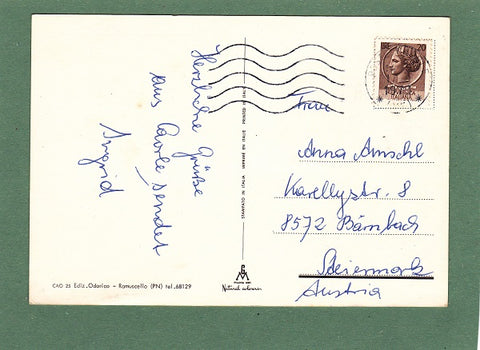 Herzliche Grüße
aus Caorle sendet
Ingrid
CAO 25 Ediz. Odorico - Ramuscello (PN) tel. 68129
STAMPATO IN ITALIA IMPRIMÉ EN ITALIE PRINTED IN ITALY
Natural colour
20
Frau
Anna
Karellystr. 8
8572 Bärnbach
Steiermark
Austria